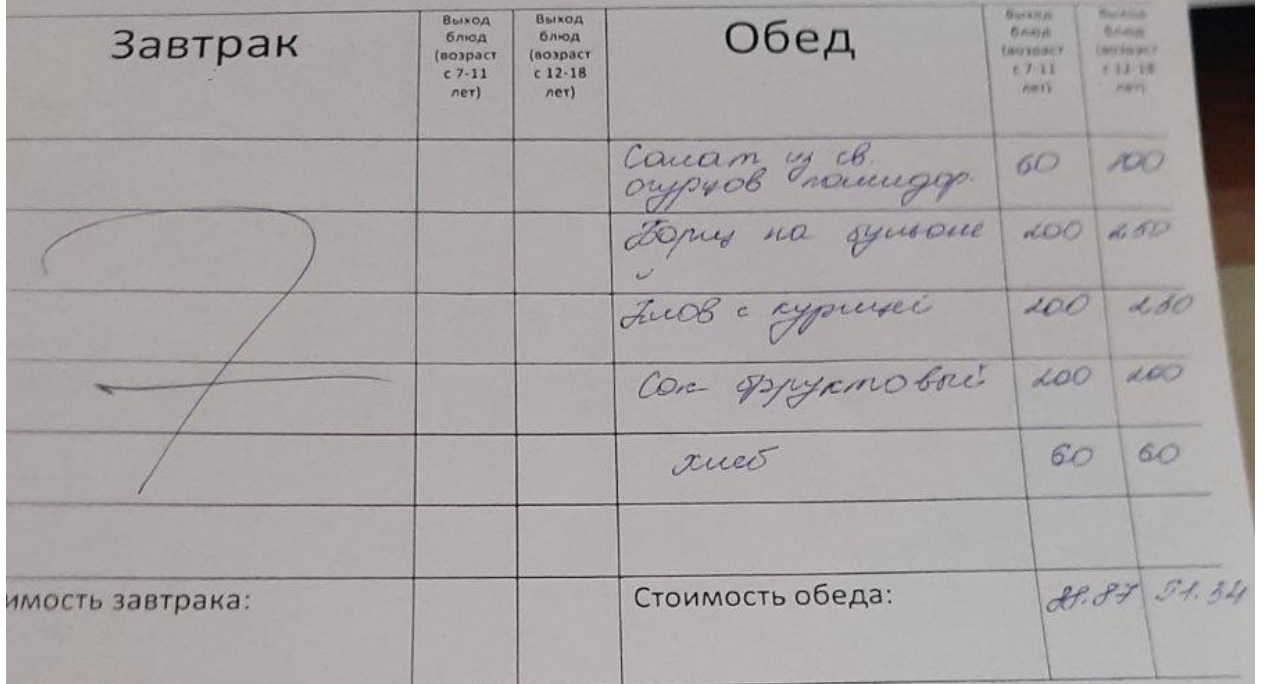 Завтрак
Выход
блюд
(возраст
с 7-11
лет)
Выход
блюд
(возраст
с 12-18
лет)
Обед
Выход
блюд
(возраст
с 7-11
лет)
Выход
блюд
(возраст
с 12-18
лет)
Салат из св.
огурцов помидор. 60 100
Борщ на бульоне 200 250
Плов с курицей 200 250
Сок фруктовый 200 200
хлеб 60 60
имость завтрака:
Стоимость обеда: .87 51.34